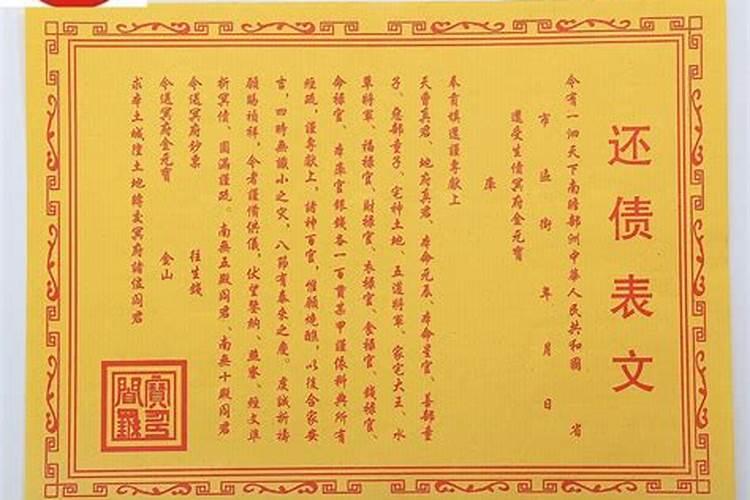 还债表文
今有一泗天下南瞻部洲中華人民共和國 省
市 區 街 年 月 日
還受生債冥府金元寶
庫
奉有填還謹專獻上
天曹真君、地府真君、本命元辰、本命星官、善部童
子、惡部童子、宅神土地、五道將軍、家宅大王、水
草將軍、福祿官、財祿官、衣祿官、食祿官、錢祿官、
命祿官、本庫官銀錢各一百貫某甲謹依科典所有
經疏,謹專獻上,諸神百官,惟願燒醮,以後合家安
吉,四時無識小之災,八節有泰來之慶。虔誠祈禱
願賜禎祥,令者謹備供儀,伏望鑒納、燕寥、經文準
折冥債、圓滿謹疏。南無五殿阎君、南無十殿阎君
今送冥府鈔票 往生錢
今送冥府金元寶 金山
求本土城隍土地轉交冥府諸位阎君